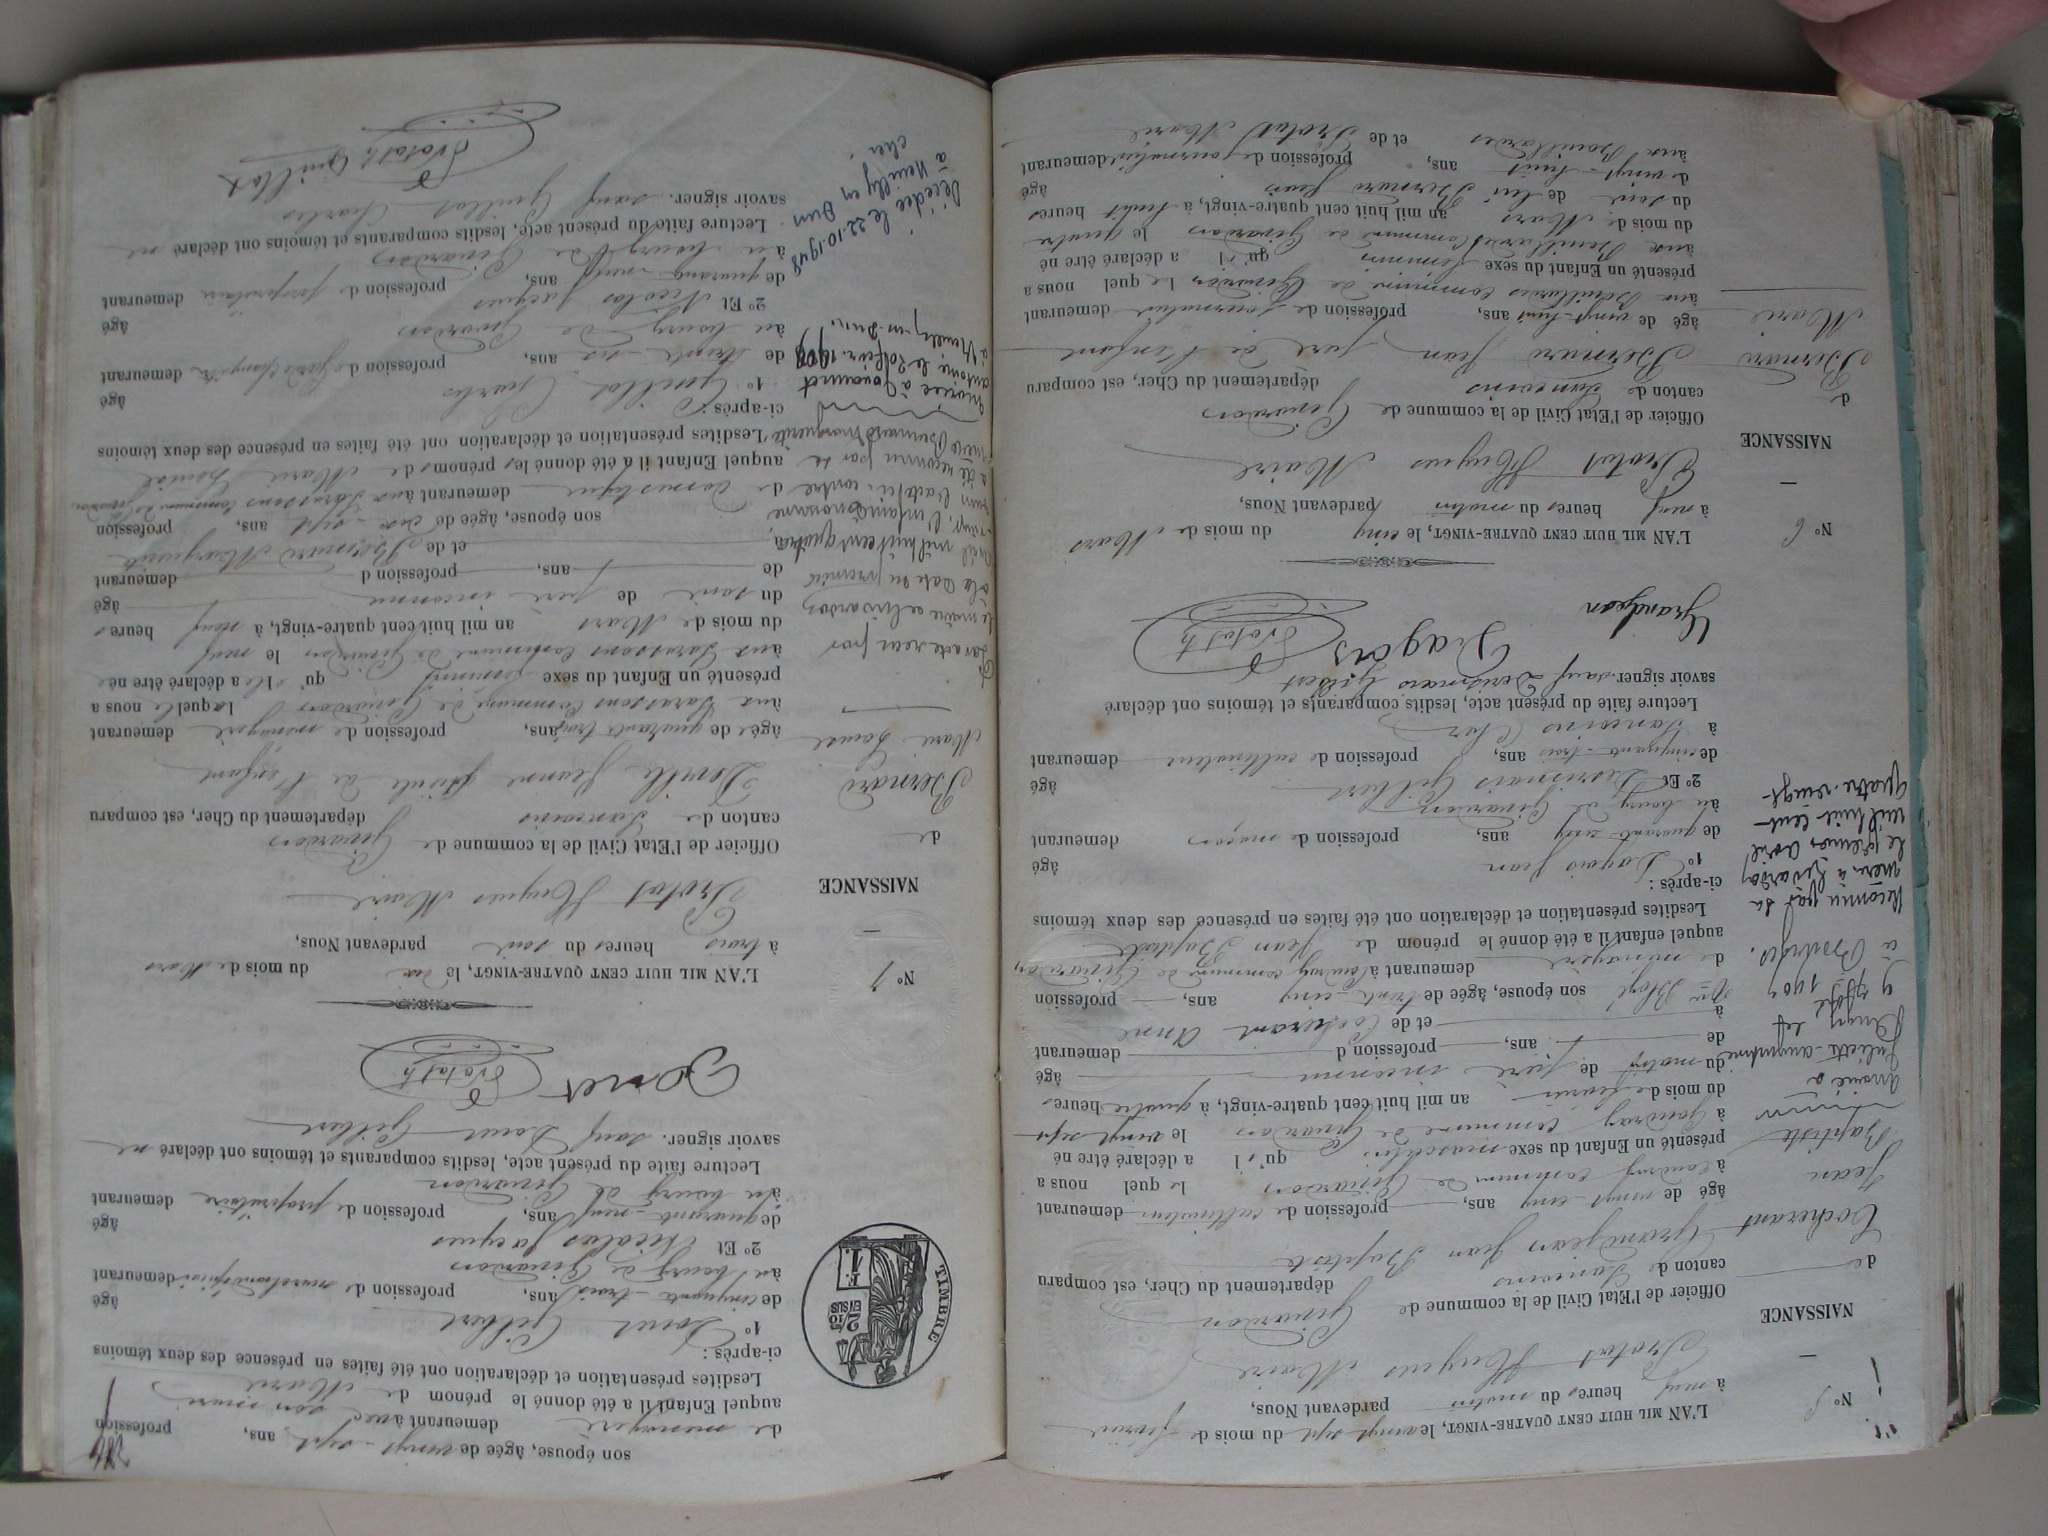 N° 5
L'AN MIL HUIT CENT QUATRE-VINGT, le vingt sept du mois de février
à neuf heures du matin pardevant Nous,
Protat Hugues Maire
NAISSANCE
Officier de l'Etat Civil de la commune de Givardon
de
canton de Sancoins département du Cher, est comparu
Cocherant
Grandjean Jean Baptiste
Jean
âgé de vingt-cinq ans, profession de cultivateur demeurant
Baptiste
à commune de Givardon lequel nous a
présenté un Enfant du sexe masculin qu'il a déclaré être né
à commune de Givardon le vingt sept
du mois de février an mil huit cent quatre-vingt, à quatre heures
du matin de père inconnu âgé
de ans, profession d demeurant
à et de Cocherant Anne
Vve Blozé son épouse, âgée de trente-cinq ans, profession
de ménagère demeurant à commune de Givardon
auquel enfant il a été donné le prénom de Jean Baptiste
Lesdites présentation et déclaration ont été faites en présence des deux témoins
ci-après :
1° Dagois Jean âgé
de quarante-cinq ans, profession de maçon demeurant
au bourg de Givardon
2° Et Desrismais Gilbert âgé
de cinquante-trois ans, profession de cultivateur demeurant
à Sancoins Cher
Lecture faite du présent acte, lesdits comparants et témoins ont déclaré
savoir signer sauf Desrismais Gilbert
Grandjean
Dagois
Protat h
Marié à
Juliette
le
9 1907
à Bourges.
Reconnu par sa
mère à Givardon
le premier avril
mil huit cent
quatre-vingt-
N° 6
L'AN MIL HUIT CENT QUATRE-VINGT, le cinq du mois de Mars
à neuf heures du matin pardevant Nous,
Protat Hugues Maire
NAISSANCE
Officier de l'Etat Civil de la commune de Givardon
de
canton de Sancoins département du Cher, est comparu
Bernard
Bernard Jean père de l'enfant
Marie
âgé de vingt-huit ans, profession de journalier demeurant
aux Bouillards commune de Givardon lequel nous a
présenté un Enfant du sexe féminin qu'il a déclaré être né
aux Bouillards commune de Givardon le quatre
du mois de Mars an mil huit cent quatre-vingt, à huit heures
du soir de lui Bernard Jean âgé
de vingt-huit ans, profession de journalier demeurant
aux Bouillards et de Protat Marie
son épouse, âgée de vingt-sept ans, profession
de ménagère demeurant à avec son mari
auquel Enfant il a été donné le prénom de Marie
Lesdites présentation et déclaration ont été faites en présence des deux témoins
ci-après :
1° Doret Gilbert âgé
de cinquante-trois ans, profession de marchand épicier demeurant
au bourg de Givardon
2° Et Nicolas Jacques âgé
de quarante-neuf ans, profession de propriétaire demeurant
au bourg de Givardon
Lecture faite du présent acte, lesdits comparants et témoins ont déclaré ne
savoir signer. sauf Doret Gilbert
Doret
Protat h
TIMBRE
2/10 EN SUS
1 F.
N° 7
L'AN MIL HUIT CENT QUATRE-VINGT, le dix du mois de Mars
à trois heures du soir pardevant Nous,
Protat Hugues Maire
NAISSANCE
Officier de l'Etat Civil de la commune de Givardon
de
canton de Sancoins département du Cher, est comparu
Bernard
Deville Jeanne aïeule de l'enfant
Marie Louise
âgée de quarante trois ans, profession de ménagère demeurant
aux Sarassons commune de Givardon laquelle nous a
présenté un Enfant du sexe féminin qu'elle a déclaré être née
aux Sarassons commune de Givardon le neuf
du mois de Mars an mil huit cent quatre-vingt, à neuf heures
du soir de père inconnu âgé
de ans, profession d demeurant
et de Bernard Marguerite
son épouse, âgée de dix-sept ans, profession
de domestique demeurant aux Sarassons commune de Givardon
auquel Enfant il a été donné les prénoms de Marie Louise
Lesdites présentation et déclaration ont été faites en présence des deux témoins
ci-après :
1° Guillot Charles âgé
de trente-six ans, profession de garde champêtre demeurant
au bourg de Givardon
2° Et Nicolas Jacques âgé
de quarante-neuf ans, profession de propriétaire demeurant
au bourg de Givardon
Lecture faite du présent acte, lesdits comparants et témoins ont déclaré ne
savoir signer. sauf Guillot Charles
Protat h Guillot
Par acte reçu par
le maire de Givardon
à la date du premier
avril mil huit cent quatre
vingt, l'enfant dénommé
dans l'acte ci-contre
a été reconnu par sa
mère Bernard Marguerite
Mariée à Jouannet
antoine le 20 févr. 1909
à Neuilly-en-Dun.
Décédée le 22.10.1948
à Neuilly en Dun
Cher.